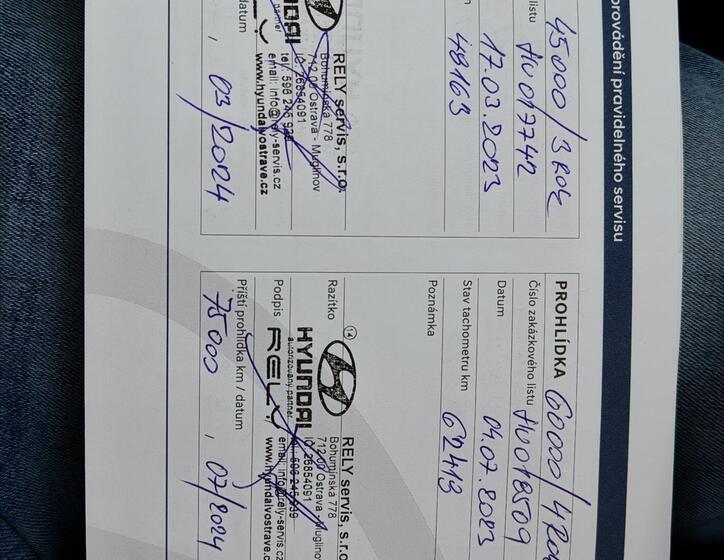 provádění pravidelného servisu
45000/3 ROK
listu HV017742
17.03.2023
48163
RELY servis, s.r.o.
Bohumínská 778
712 00 Ostrava - Muglinov
IČ: 26854091
email: info@rely-servis.cz
www.hyundaivostrave.cz
/ datum
, 03/2024
PROHLÍDKA 60000/4 ROK
Číslo zakázkového listu HV018509
Datum 04.07.2023
Stav tachometru km 62413
Poznámka
Razítko
14
HYUNDAI
autorizovaný partner
RELY
RELY servis, s.r.o
Bohumínská 778
712 00 Ostrava - Muglinov
IČ: 26854091
email: info@rely-servis.cz
www.hyundaivostrave.cz
Podpis
Příští prohlídka km / datum
75000 , 07/2024